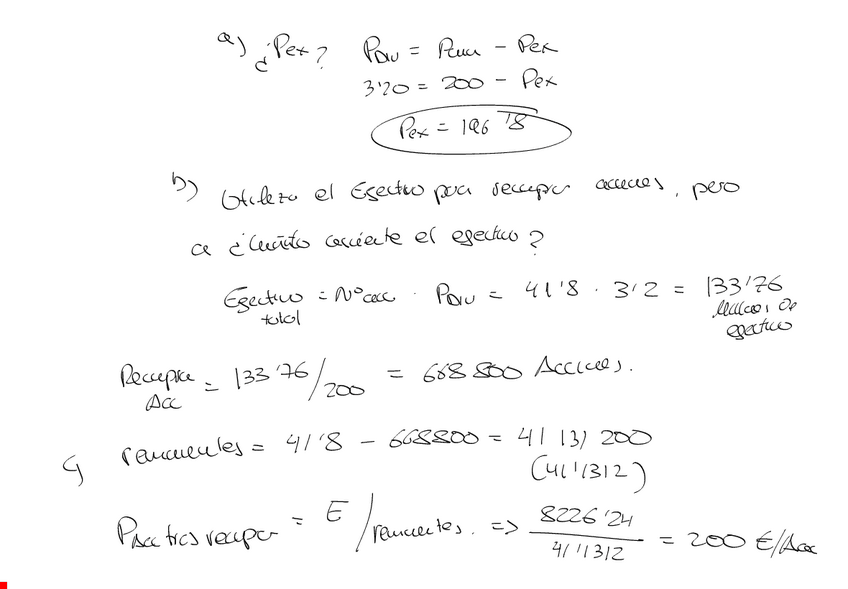 a) ¿Pex? PDIV = Pcum - Pex
3'20 = 200 - Pex
Pex = 196'8
b) Utilizo el Efectivo para recuperar acciones, pero
a ¿Cuánto asciente el efectivo?
Efectivo total = Nº acc · PDIV = 41'8 · 3'2 = 133'76 millones de efectivo
Recupra Acc = 133'76/200 = 668 800 Acciones.
remanentes = 41'8 - 668800 = 41 131 200
(41'1312)
PAcc tras recupr = E / remanentes. => 8226'24 / 41'1312 = 200 €/Acc